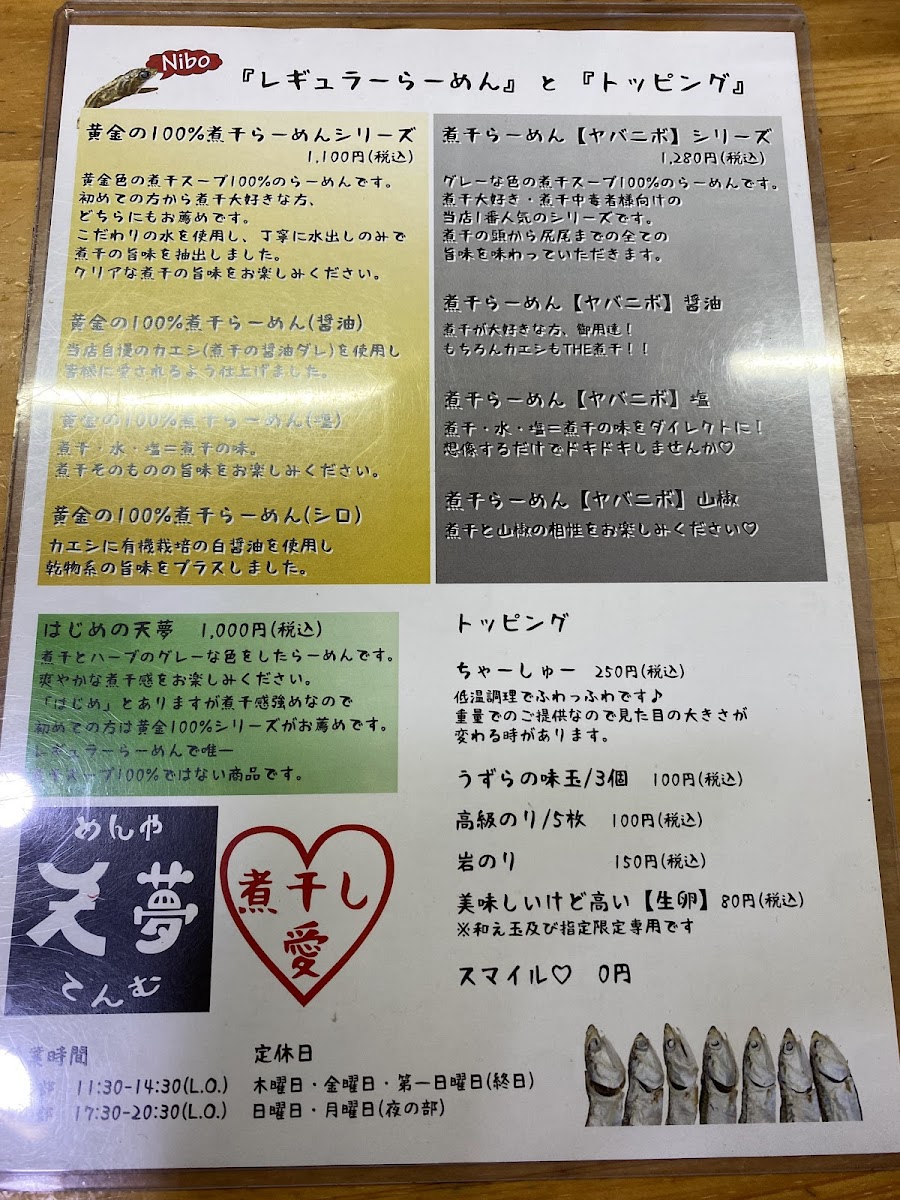 Nibo
『レギュラーらーめん』と『トッピング』
黄金の100%煮干らーめんシリーズ
1,100円(税込)
黄金色の煮干スープ100%のらーめんです。
初めての方から煮干大好きな方、
どちらにもお薦めです。
こだわりの水を使用し、丁寧に水出しのみで
煮干の旨味を抽出しました。
クリアな煮干の旨味をお楽しみください。
黄金の100%煮干らーめん(醤油)
当店自慢のカエシ(煮干の醤油ダレ)を使用し
皆様に愛されるよう仕上げました。
黄金の100%煮干らーめん(塩)
煮干・水・塩=煮干の味。
煮干そのものの旨味をお楽しみください。
黄金の100%煮干らーめん(シロ)
カエシに有機栽培の白醤油を使用し
乾物系の旨味をプラスしました。
煮干らーめん【ヤバニボ】シリーズ
1,280円(税込)
グレーな色の煮干スープ100%のらーめんです。
煮干大好き・煮干中毒者様向けの
当店1番人気のシリーズです。
煮干の頭から尻尾までの全ての
旨味を味わっていただきます。
煮干らーめん【ヤバニボ】醤油
煮干が大好きな方、御用達!
もちろんカエシもTHE煮干!!
煮干らーめん【ヤバニボ】塩
煮干・水・塩=煮干の味をダイレクトに!
想像するだけでドキドキしませんか♡
煮干らーめん【ヤバニボ】山椒
煮干と山椒の相性をお楽しみください♡
はじめの天夢 1,000円(税込)
煮干とハーブのグレーな色をしたらーめんです。
爽やかな煮干感をお楽しみください。
「はじめ」とありますが煮干感強めなので
初めての方は黄金100%シリーズがお薦めです。
レギュラーらーめんで唯一
スープ100%ではない商品です。
トッピング
ちゃーしゅー 250円(税込)
低温調理でふわっふわです♪
重量でのご提供なので見た目の大きさが
変わる時があります。
うずらの味玉/3個 100円(税込)
高級のり/5枚 100円(税込)
岩のり 150円(税込)
美味しいけど高い【生卵】80円(税込)
※和え玉及び指定限定専用です
スマイル♡ 0円
めんや
天夢
てんむ
煮干し
愛
業時間
部 11:30-14:30(L.O.)
部 17:30-20:30(L.O.)
定休日
木曜日・金曜日・第一日曜日(終日)
日曜日・月曜日(夜の部)